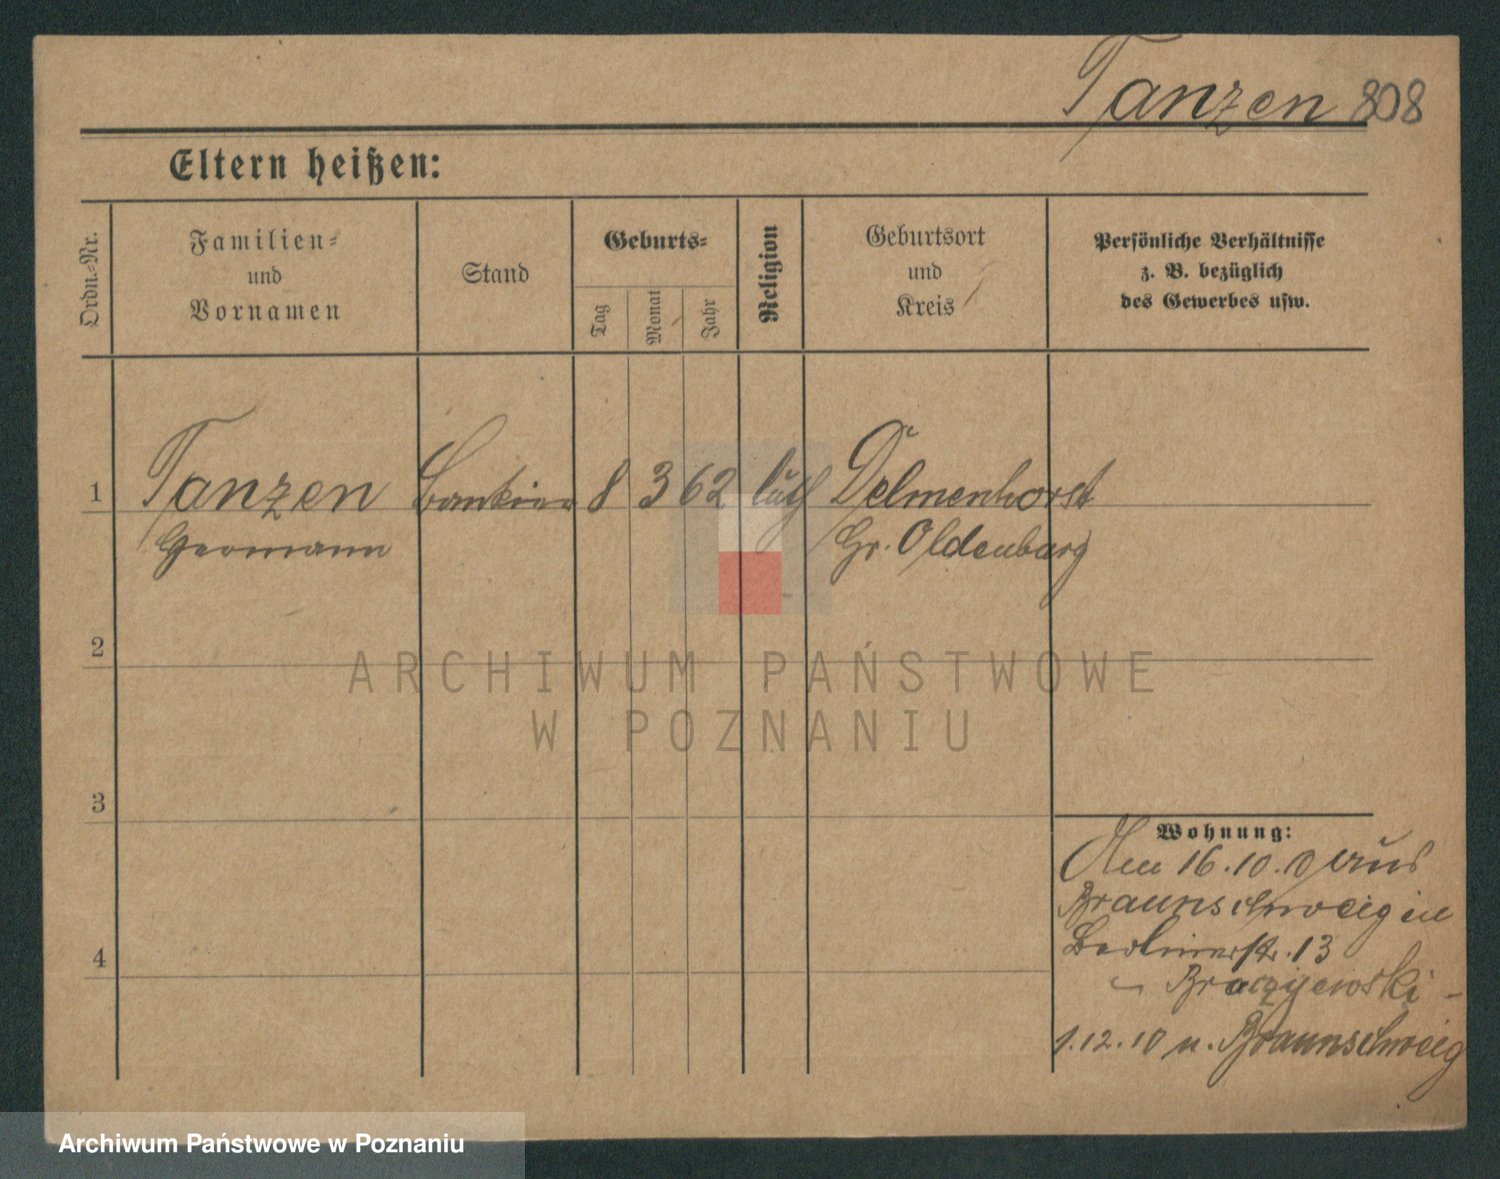 Tanzen 808
Eltern heißen:
Ordn.-Nr.
Familien-
und
Vornamen
Stand
Geburts-
Tag
Monat
Jahr
Religion
Geburtsort
und
Kreis
Persönliche Verhältnisse
z. B. bezüglich
des Gewerbes usw.
1
Tanzen Bankier 8 3 62 luth Delmenhorst
Hermann Gr. Oldenburg
2
ARCHIWUM PAŃSTWOWE
W POZNANIU
3
Wohnung:
16.10.0 aus
Braunschweig in
Berlinerstr. 13
1.12.10 n. Braunschweig
4
Archiwum Państwowe w Poznaniu